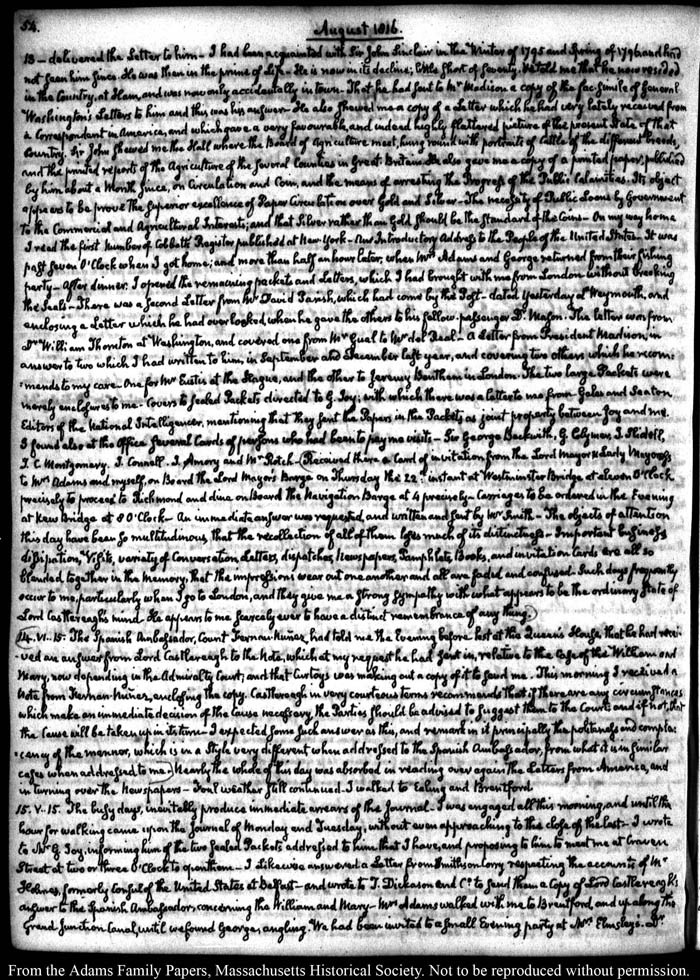 54.
August 1816.
13 — delivered the Letter to him — I had been acquainted with Sir John Sinclair in the Winter of 1795 and Spring of 1796, and had
not seen him since. He was then in the prime of Life. He is now in its decline; little short of seventy. He told me that he now resided
in the Country, at Ham, and was now only accidentally in town — That he had sent to Mr Madison a copy of the fac-simile of General
Washington's Letters to him and this was his answer — He also shewed me a copy of a Letter which he had very lately received from
a Correspondent in America, and which gave a very favourable, and indeed highly flattered picture of the present State of that
Country. Sir John shewed me the Hall where the Board of Agriculture meet, hung round with portraits of Cattle of the different breeds,
and the printed reports of the Agriculture of the several Counties in Great Britain. He also gave me a copy of a printed paper, published
by him about a Month since, on Circulation and Coin, and the means of arresting the Progress of the Public Calamities. Its object
appears to be prove the superior excellence of Paper Circulation over Gold and Silver — The necessity of Public Loans by Government
to the Commercial and Agricultural Interests; and that Silver rather than Gold should be the standard of the Coins — On my way home
I read the first Number of Cobbett's Register published at New-York — New Introductory Address to the People of the United States — It was
past seven O'Clock when I got home; and more than half an hour later, when Mrs Adams and George returned from their fishing
party — After dinner I opened the remaining packets and Letters, which I had brought with me from London without breaking
the Seals — There was a second Letter from Mr David Parish, which had come by the Post — dated yesterday at Weymouth, and
enclosing a Letter which he had overlooked when he gave the others to his fellow-passenger Dr Mason. The letter was from
Dr William Thornton at Washington, and covered one from Mr Gual to Mr del Real — A Letter from President Madison, in
answer to two which I had written to him, in September and December last year, and covering two others which he recom-
mends to my care — One for Mr Eustis at the Hague, and the other to Jeremy Bentham in London. The two large Packets were
merely enclosures to me — Covers to sealed Packets directed to G. Joy; with which there was a letter to me from Gales and Seaton,
Editors of the National Intelligencer, mentioning that they sent the Papers in the Packets as joint property between Joy and me.
I found also at the Office several Cards of persons who had been to pay me visits — Sir George Beckwith, G. Clymer, J. Slidell,
J. C. Montgomery, J. Connell, J. Amory and Mr Rotch — (Received there a Card of invitation from the Lord Mayor & Lady Mayoress
to Mrs Adams and myself, on Board the Lord Mayor's Barge on Thursday the 22d instant at Westminster Bridge at eleven O'Clock
precisely to proceed to Richmond and dine on Board the Navigation Barge at 4 precisely — Carriages to be ordered in the Evening
at Kew Bridge at 8 O'Clock — An immediate answer was requested, and written and sent by Mr Smith — The objects of attention
this day have been so multitudinous, that the recollection of all of them loses much of its distinctness — Important business
dissipation, Visits, variety of Conversation, Letters, dispatches, Newspapers, Pamphlets, Books, and invitation Cards are all so
blended together in the Memory, that the impressions wear out one another and all are faded and confused. Such days frequently
occur to me, particularly when I go to London, and they give me a strong sympathy with what appears to be the ordinary State of
Lord Castlereagh's mind. He appears to me scarcely ever to have a distinct remembrance of any thing.)
14. VI.15. The Spanish Ambassador, Count Fernan Nuñez, had told me the Evening before last at the Queen's House, that he had recei-
ved an answer from Lord Castlereagh to the Note, which at my request he had sent in, relative to the Case of the William and
Mary, now depending in the Admiralty Court; and that Curtoys was making out a copy of it to send me. This morning I received a
Note from Fernan Nuñez, enclosing the copy. Castlereagh in very courteous terms recommends that if there are any circumstances
which make an immediate decision of the Cause necessary, the Parties should be advised to suggest them to the Court; and if not, that
the Cause will be taken up in its turn — I expected some such answer as this, and remark in it principally the politeness and compla-
cency of the manner, which is in a Style very different when addressed to the Spanish Ambassador, from what it is in similar
cases when addressed to me.) Nearly the whole of this day was absorbed in reading over again the Letters from America, and
in turning over the Newspapers — Foul weather still continued. I walked to Ealing and Brentford.
15. V.15. The busy days, inevitably produce immediate arrears of the Journal — I was engaged all this morning, and until the
hour for walking came upon the Journal of Monday and Tuesday, without even approaching to the close of the last — I wrote
to Mr G. Joy, informing him of the two sealed Packets addressed to him that I have, and proposing to him to meet me at Craven
Street at two or three O'Clock to open them — I likewise answered a Letter from Smithson Corry respecting the accounts of Mr
Holmes, formerly Consul of the United States at Belfast — and wrote to T. Dickason and Co to send them a Copy of Lord Castlereagh's
answer to the Spanish Ambassador, concerning the William and Mary — Mrs Adams walked with me to Brentford, and up along the
Grand Junction Canal, until we found George, angling. We had been invited to a small Evening party at Mrs Elmsley's. Dr
From the Adams Family Papers, Massachusetts Historical Society. Not to be reproduced without permission.